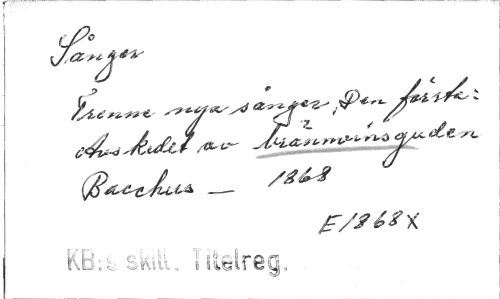 Sånger
Trenne nya sånger, Den första:
Avskedet av brännvinsguden
Bacchus — 1868
E1868x
KB:s skill. Titelreg.